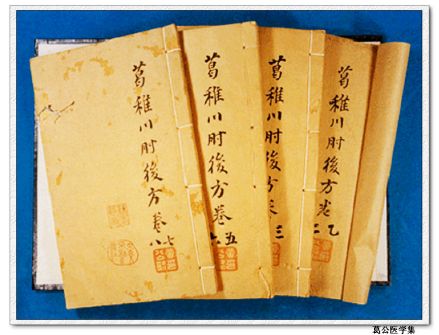 葛稚川肘後方卷七八
葛稚川肘後方卷五六
葛稚川肘後方卷三
葛稚川肘後方卷乙二
葛公医学集